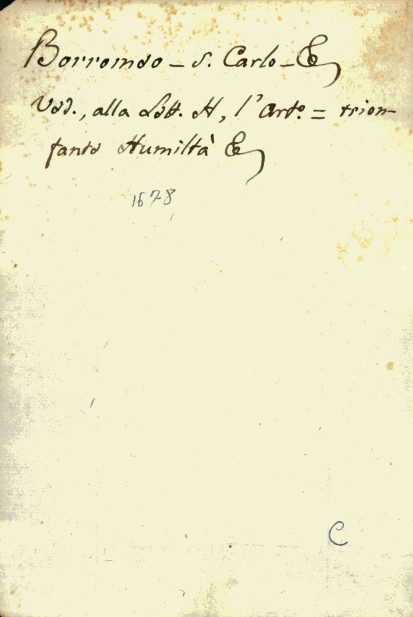 Borromeo - S. Carlo - &
Ved., alla Lett. H, l'Art.º = trion-
fante Humiltà &
1678
C